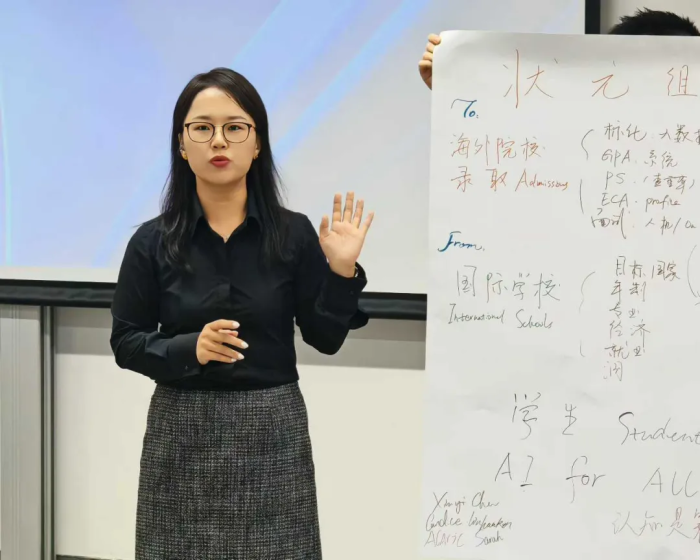 状元组
To.
海外院校
录取 Admissions
标化·大数据
GPA·系统
PS·(查重率)
ECA·profile
面试·人机/
From.
国际学校
International Schools
目标国家
年制
专业
经济
就业
学生 Student
AI for ALL
认知是